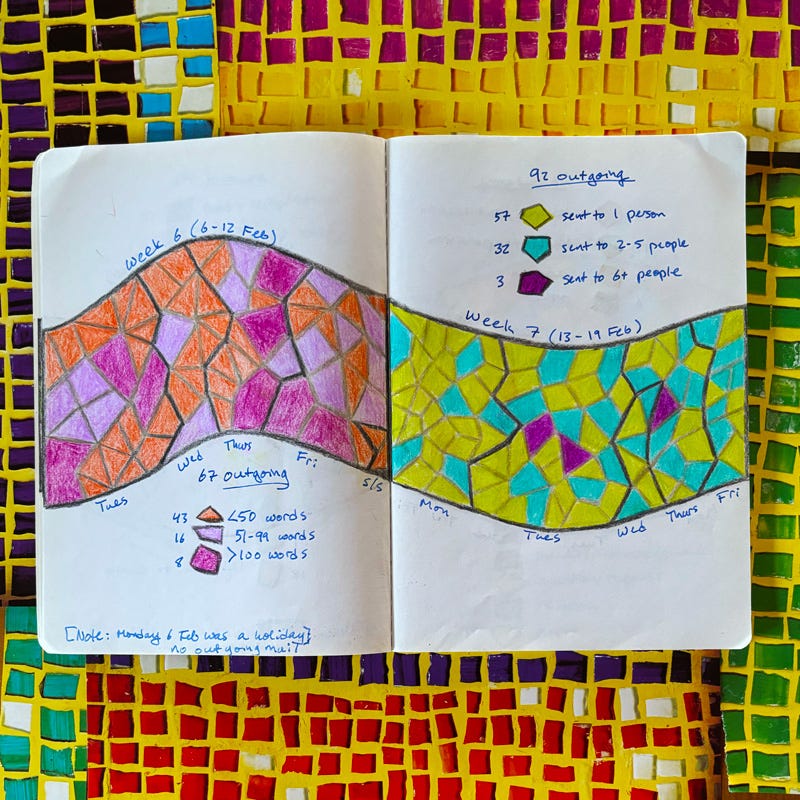 Week 6 (6-12 Feb)
Tues
Wed
Thurs
Fri
S/S
67 outgoing
43 <50 words
16 51-99 words
8 >100 words
[Note: Monday 6 Feb was a holiday]
no outgoing mail
92 outgoing
57 sent to 1 person
32 sent to 2-5 people
3 sent to 6+ people
Week 7 (13-19 Feb)
Mon
Tues
Wed
Thurs
Fri